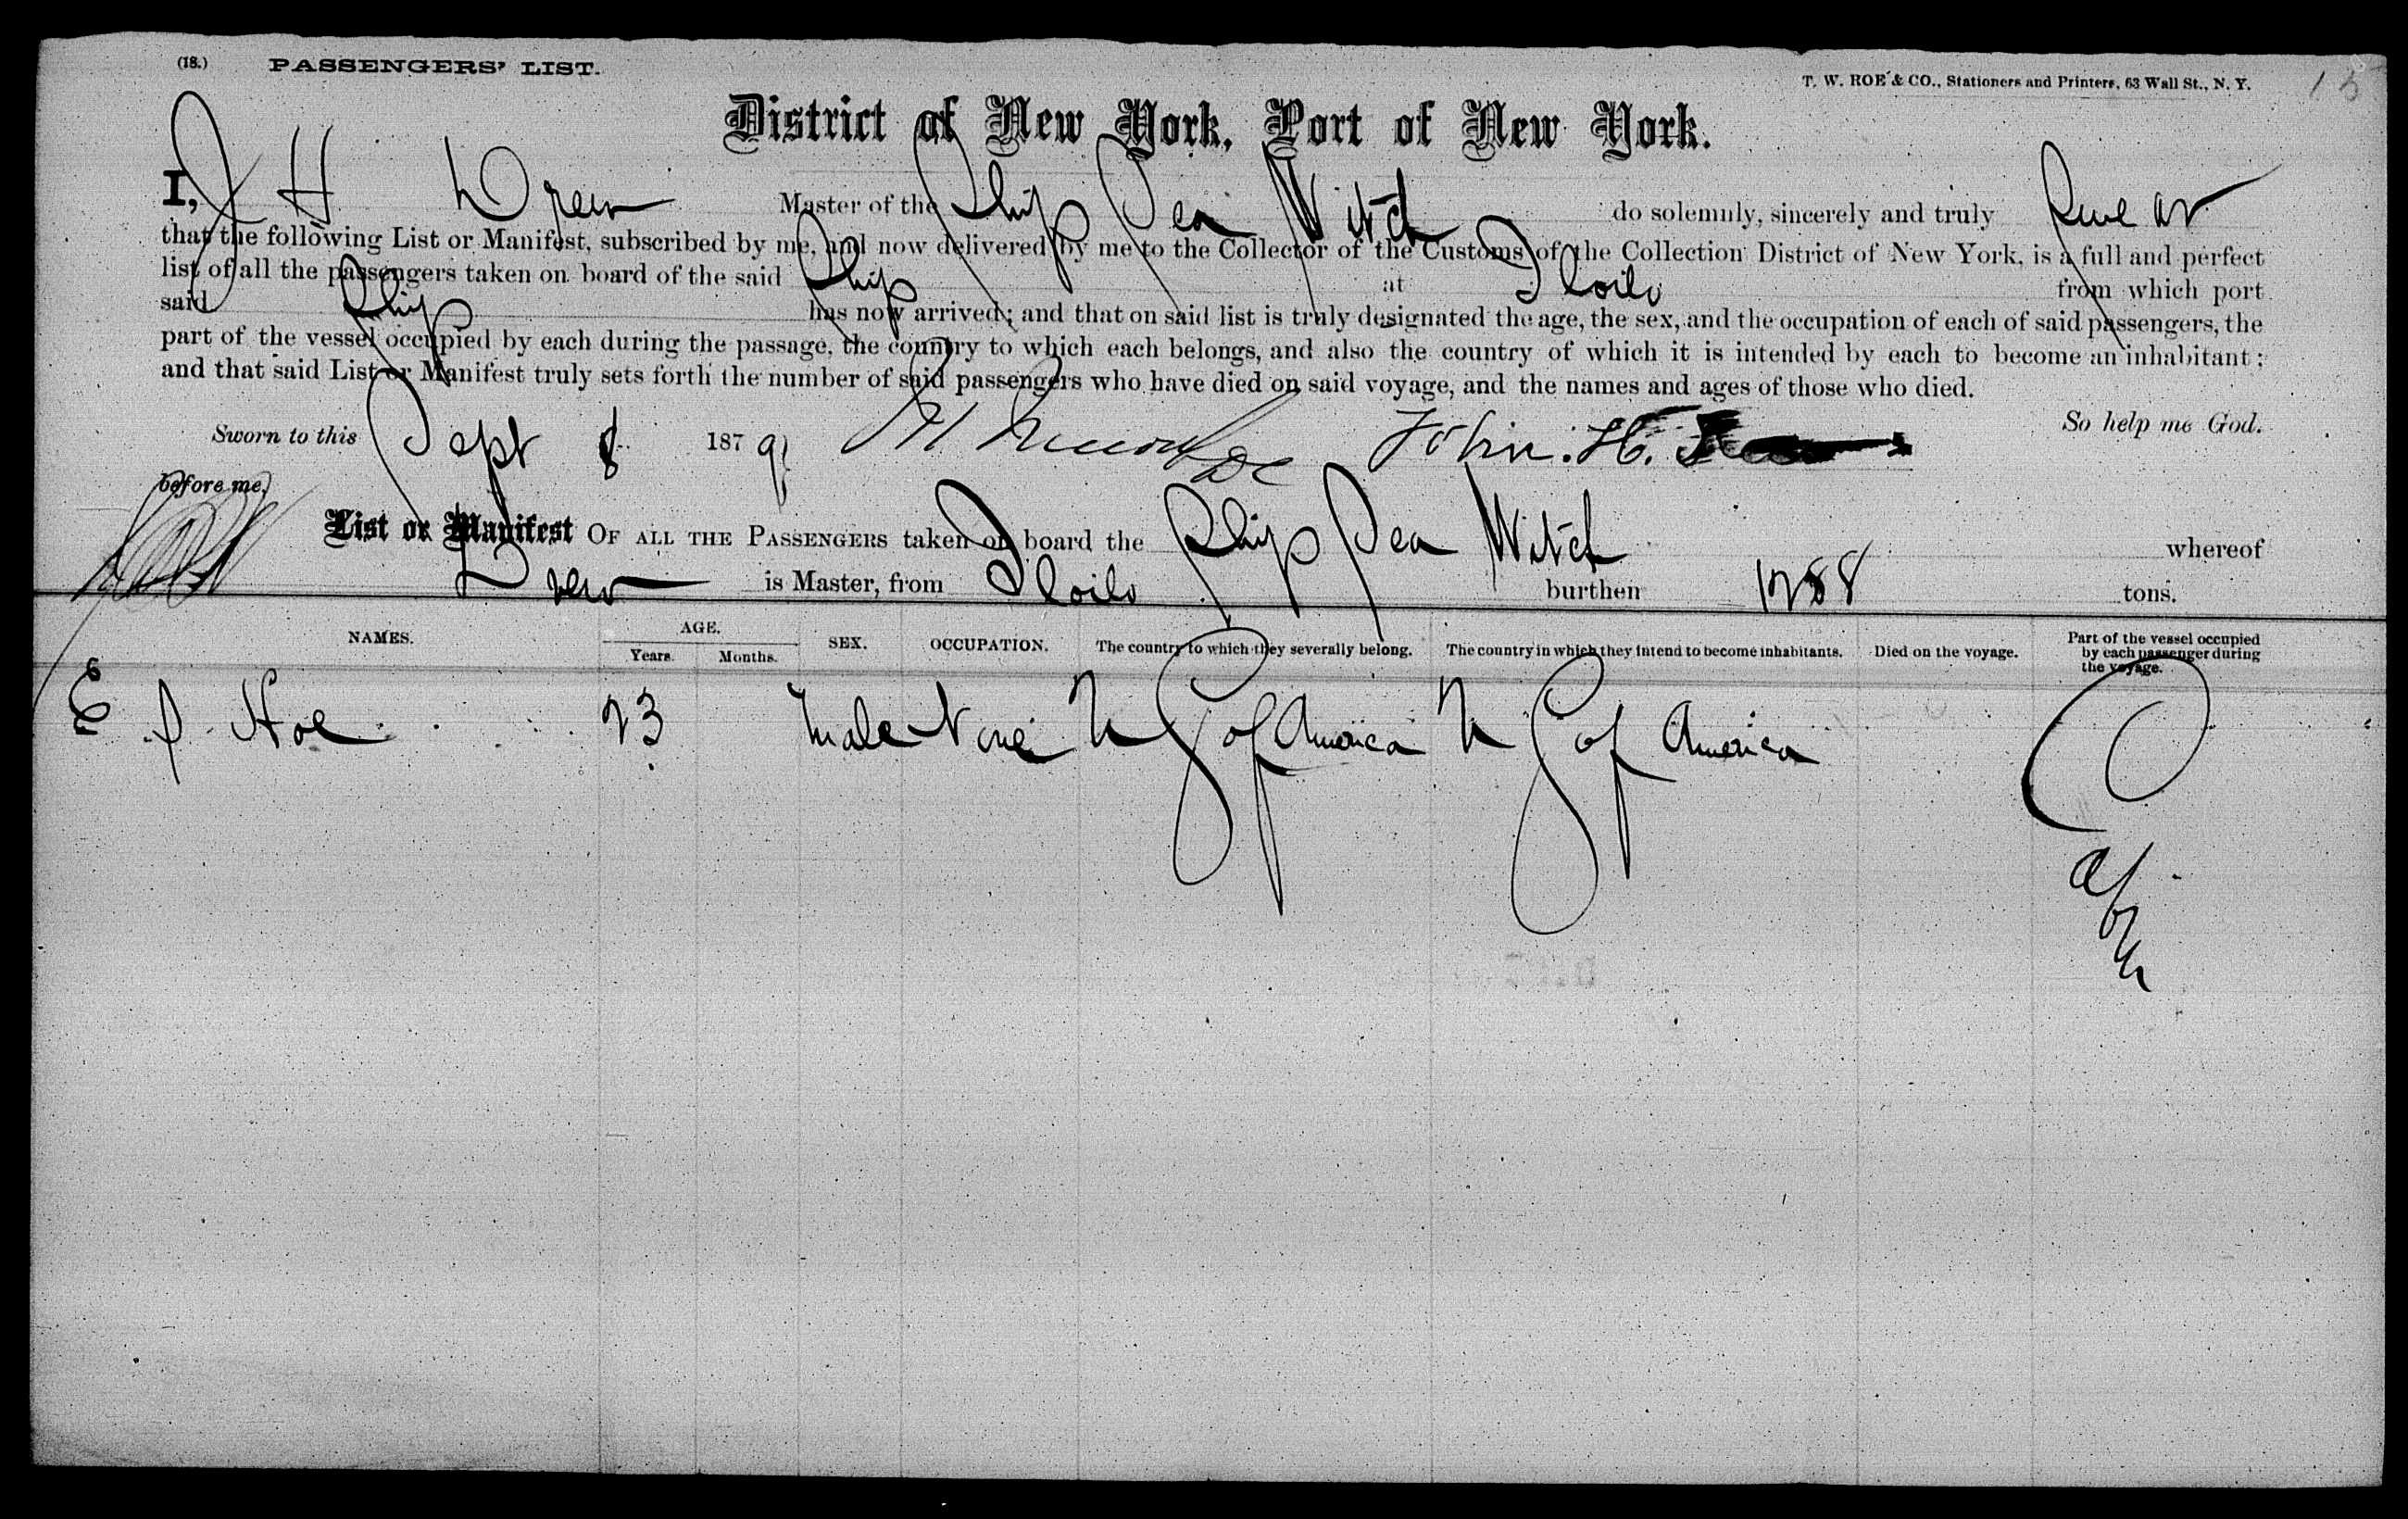 (18.) PASSENGERS' LIST.
T. W. ROE & CO., Stationers and Printers, 63 Wall St., N. Y.
15
District of New York, Port of New York.
I, J H Drew Master of the Ship Sea Witch do solemnly, sincerely and truly Swear
that the following List or Manifest, subscribed by me, and now delivered by me to the Collector of the Customs of the Collection District of New York, is a full and perfect
list of all the passengers taken on board of the said Ship at Iloilo from which port
said Ship has now arrived; and that on said list is truly designated the age, the sex, and the occupation of each of said passengers, the
part of the vessel occupied by each during the passage, the country to which each belongs, and also the country of which it is intended by each to become an inhabitant;
and that said List or Manifest truly sets forth the number of said passengers who have died on said voyage, and the names and ages of those who died.
So help me God.
Sworn to this Sept 8 1879 John. H.
before me,
List or Manifest OF ALL THE PASSENGERS taken on board the Ship Sea Witch whereof
Drew is Master, from Iloilo burthen 1288 tons.
NAMES. AGE. Years. Months. SEX. OCCUPATION. The country to which they severally belong. The country in which they intend to become inhabitants. Died on the voyage. Part of the vessel occupied by each passenger during the voyage.
E A Hoe 23 Male None U S of America U S of America Cabin